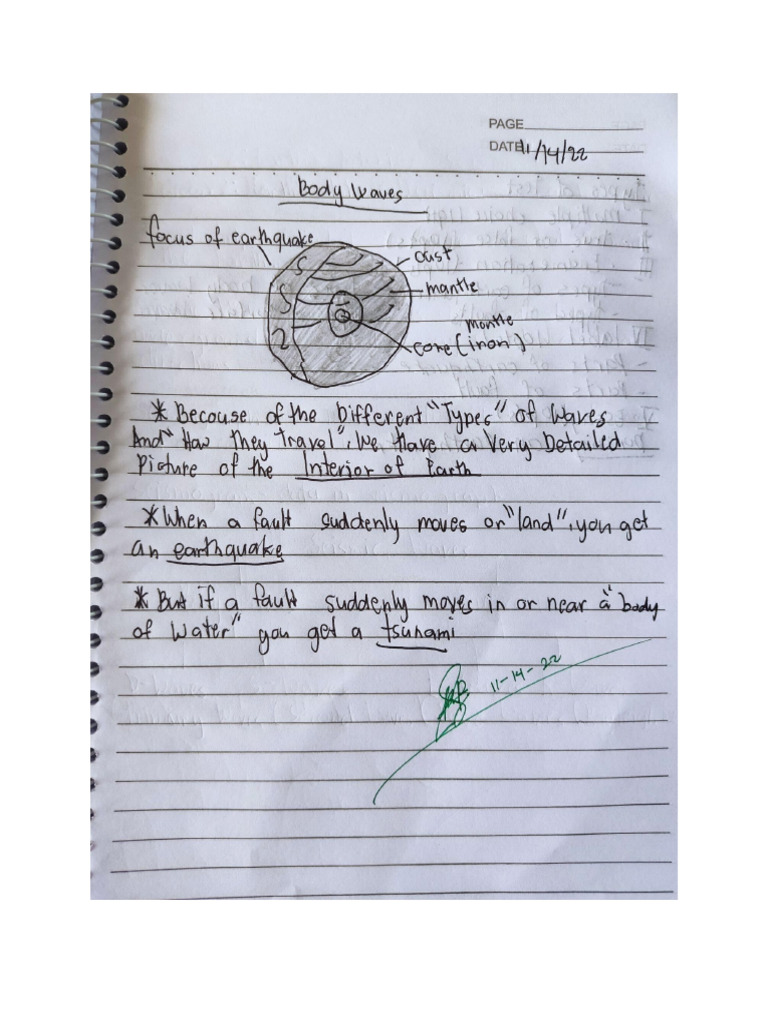 PAGE
DATE 11/14/22
Body Waves
focus of earthquake
cust
mantle
mantle
core (iron)
S
S
2
* Becouse of the Different "Types" of Waves
And "How They Travel", We Have a Very Detailed
Picture of the Interior of Earth
* When a fault suddenly moves or "land", you get
an earthquake
* But if a fault suddenly moves in or near a "body
of Water" you get a tsunami
11-14-22